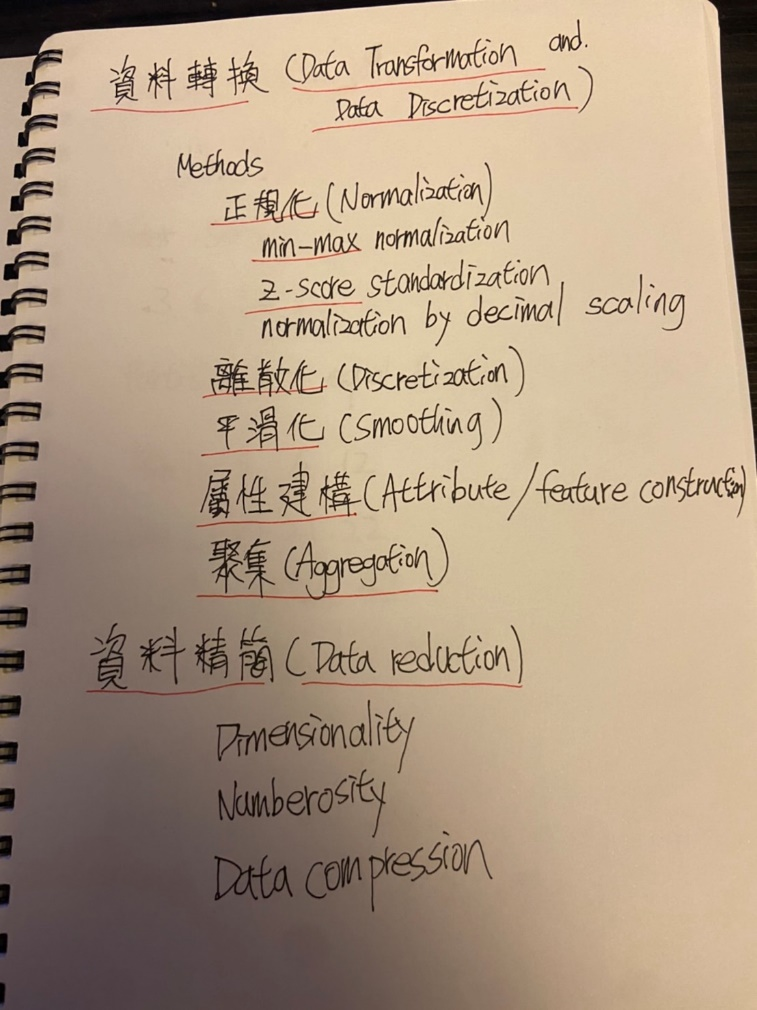 資料轉換 (Data Transformation and.
Data Discretization)
Methods
正規化 (Normalization)
min-max normalization
z-score standardization
normalization by decimal scaling
離散化 (Discretization)
平滑化 (Smoothing)
屬性建構 (Attribute/feature construction)
聚集 (Aggregation)
資料精簡 (Data reduction)
Dimensionality
Numberosity
Data compression